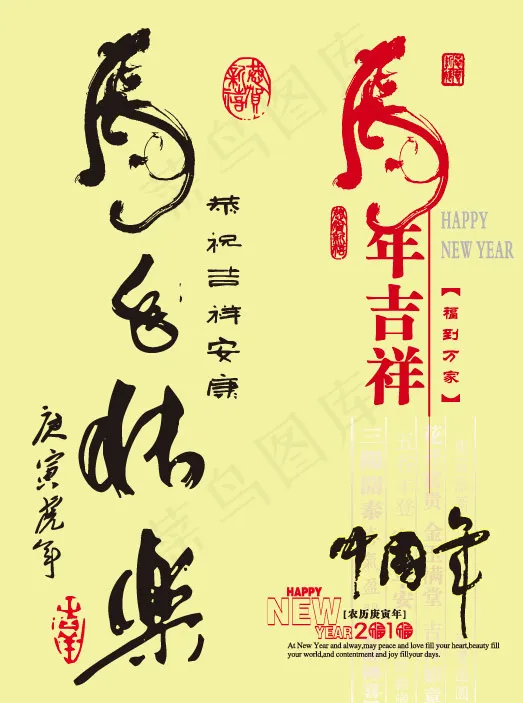 虎年快樂
恭祝吉祥安康
庚寅虎年
恭賀新禧
虎年吉祥
HAPPY
NEW YEAR
【福到万家】
中國年
HAPPY
NEW
YEAR 2010
[农历庚寅年]
At New Year and alway,may peace and love fill your heart,beauty fill
your world,and contentment and joy fillyour days.
菜鸟图库